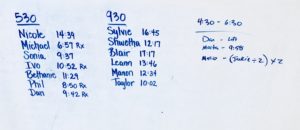 530
Nicole 14:39
Michael 6:57 Rx
Sonia 9:37
Ivo 10:52 Rx
Bethanie 11:29
Phil 8:50 Rx
Dan 9:42 Rx
930
Sylvie 16:45
Shwetha 12:17
Blair 17:17
Leann 13:46
Manon 12:34
Taylor 10:02
4:30 - 6:30
Dan - Lift
- 9:58
- (Sadie ÷ 2) x 2